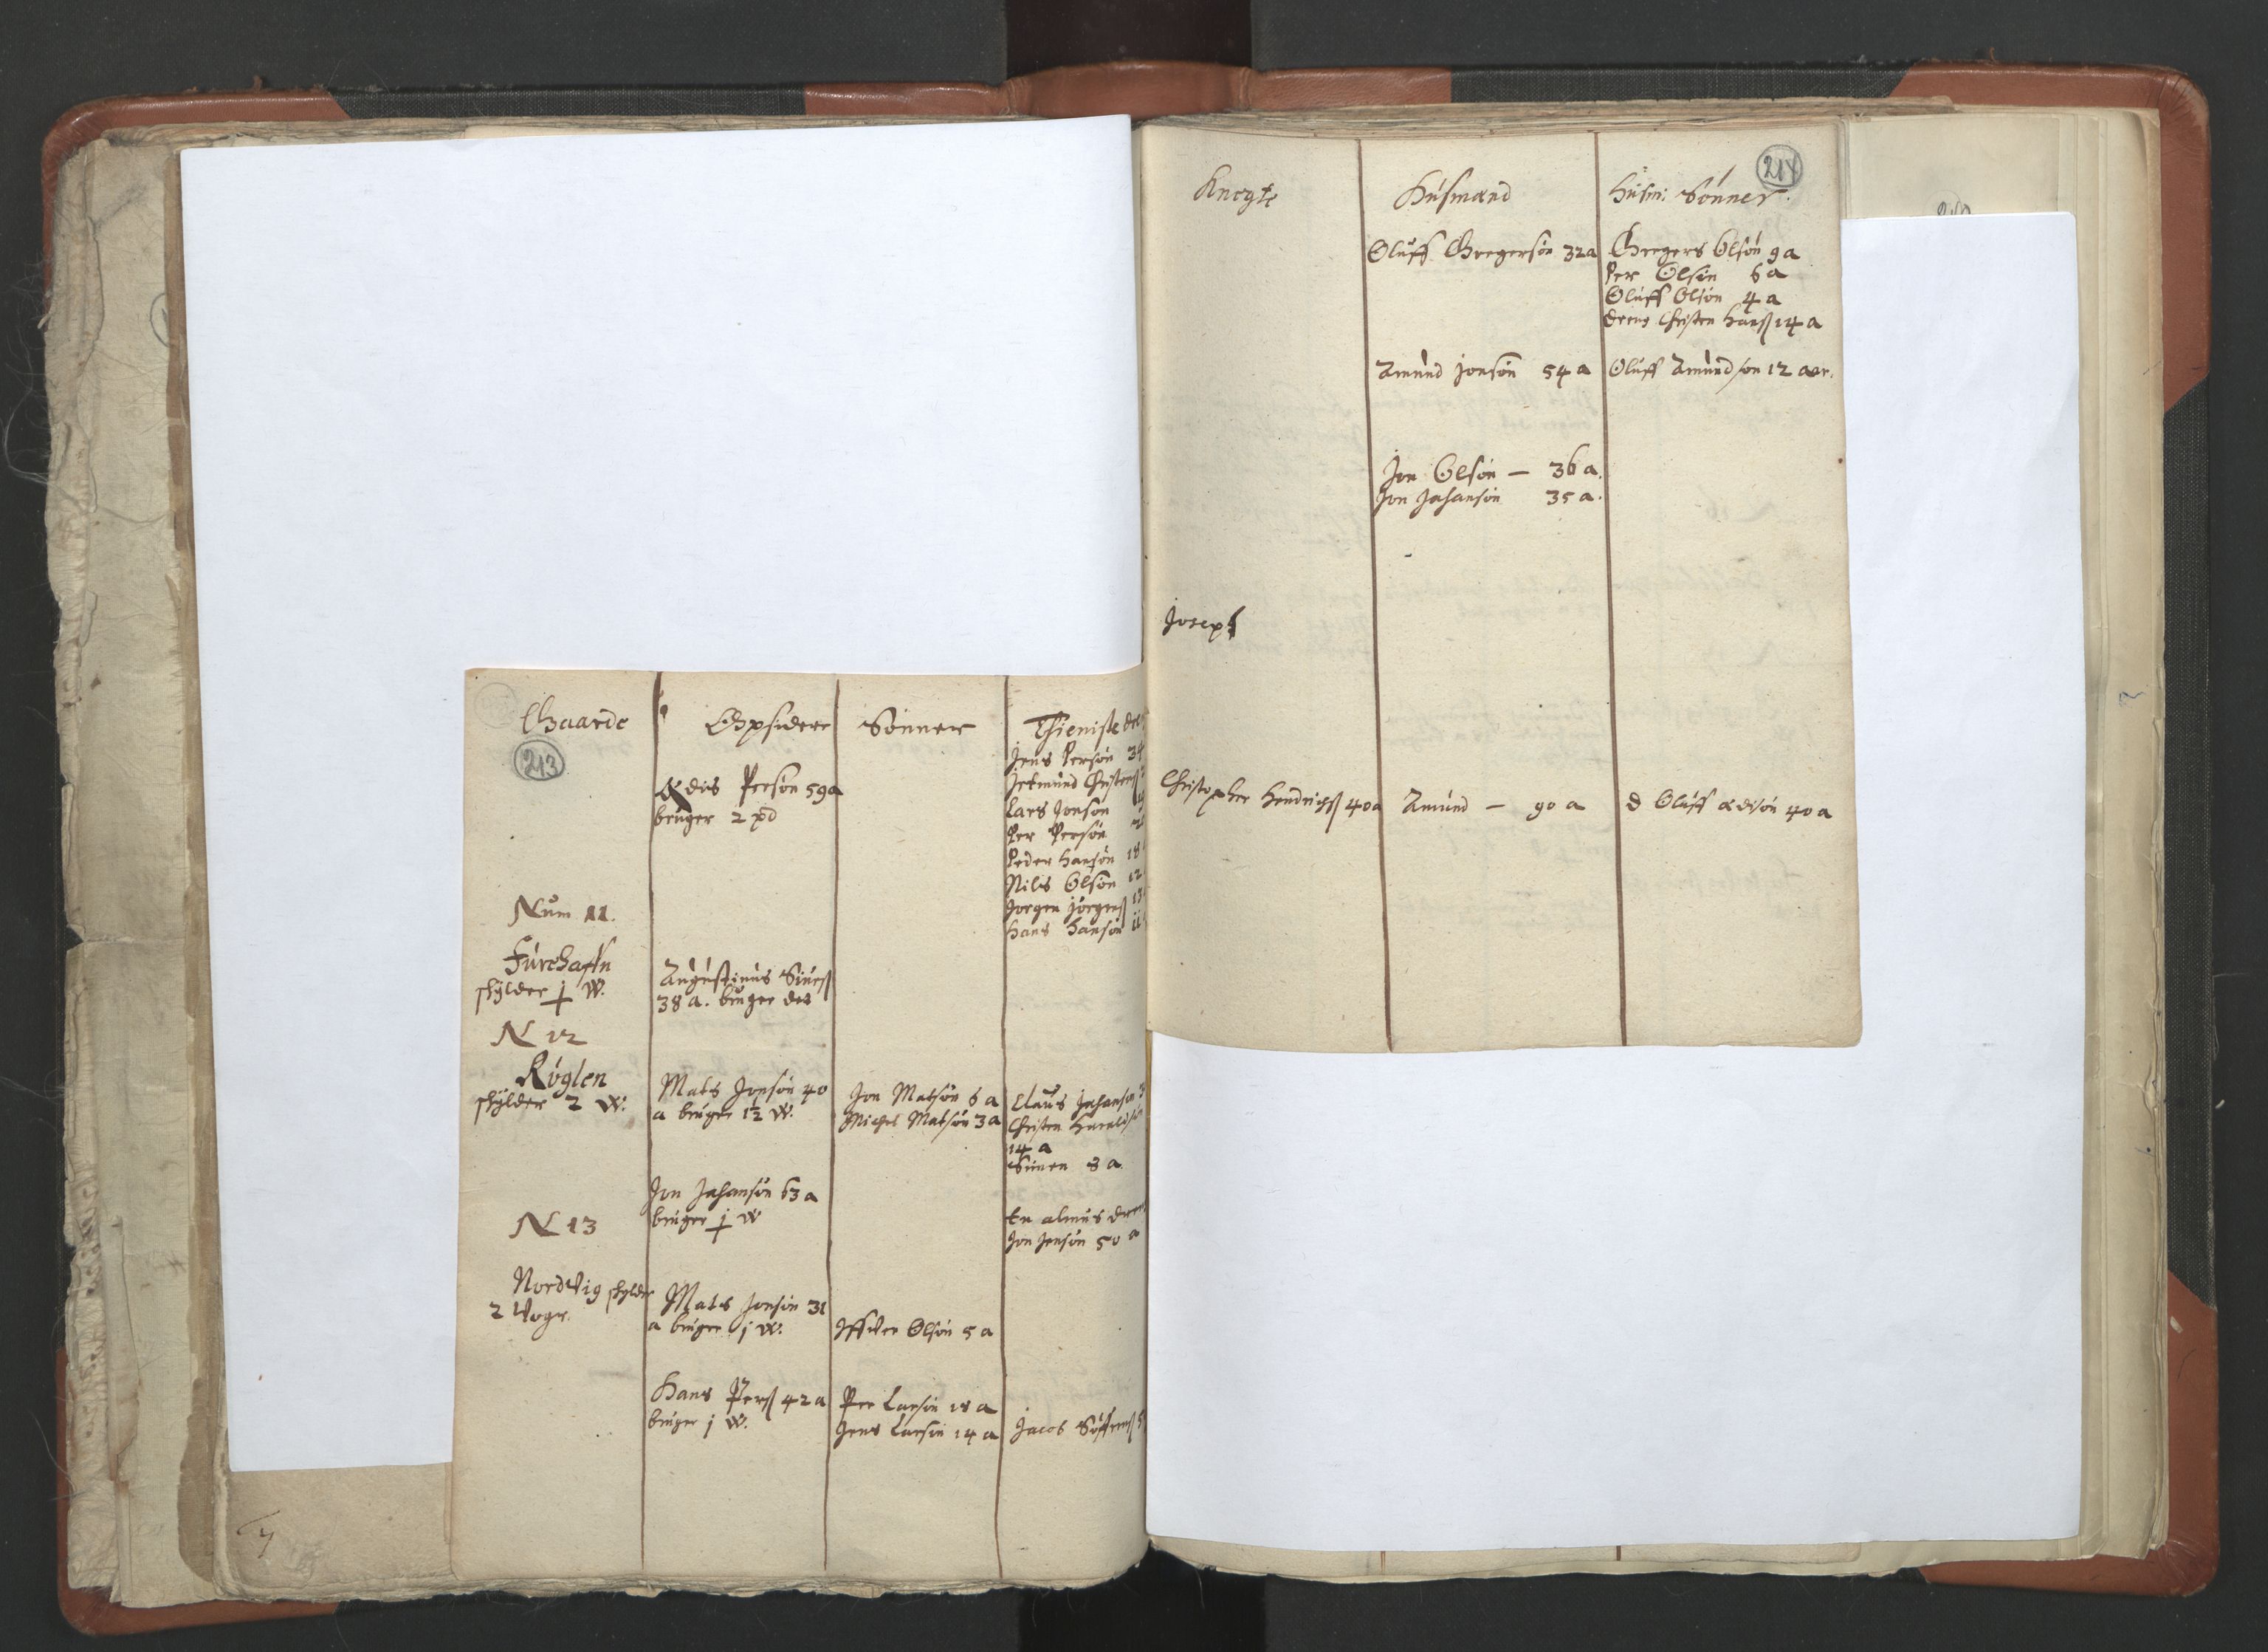 Gaarde
213
Opsidere
Sønner
Thieniste dre
Jens Persøn 34
Jetmund Christens
Lars Jonsøn
Per Persøn
Peder Hansøn 18
Nils Olsøn 12
Jørgen Jørgens 13
Hans Hansøn 11
Edis Persøn 59 a
bruger 2 pd
Num 11.
Furehaffn
schylder j W.
Augustinus Siurs
38 a. bruger det
N 12
Røglen
schylder 2 W.
Mats Jonsøn 40
a bruger 1½ W.
Jon Matsøn 6 a
Michel Matsøn 3 a
Claus Johansøn 3
Christen
14 a
Simen 8 a
Jon Johansøn 63 a
bruger j W
En almus dren
Jon Jensøn 50 a
N 13
Nordvig schylder
2 Voge.
Mats Jonsøn 31
a bruger j W.
Iffver Olsøn 5 a
Hans Pers 42 a
bruger j W.
Per Larsøn 18 a
Jens Larsøn 14 a
Jacob Søffrens 5
Knegte
Husmænd
Husm: Sønner.
214
Oluff Gregersøn 32 a
Gregers Olsøn 9 a
Per Olsøn 6 a
Oluff Olsøn 4 a
dreng Christen Hans 14 a
Amund Jonsøn 54 a
Oluff Amundsøn 12 aer.
Jon Olsøn — 36 a.
Jon Johansøn 35 a.
Joseph
Christopher Hendrichs 40 a
Amund — 90 a
d Oluff Edisøn 40 a